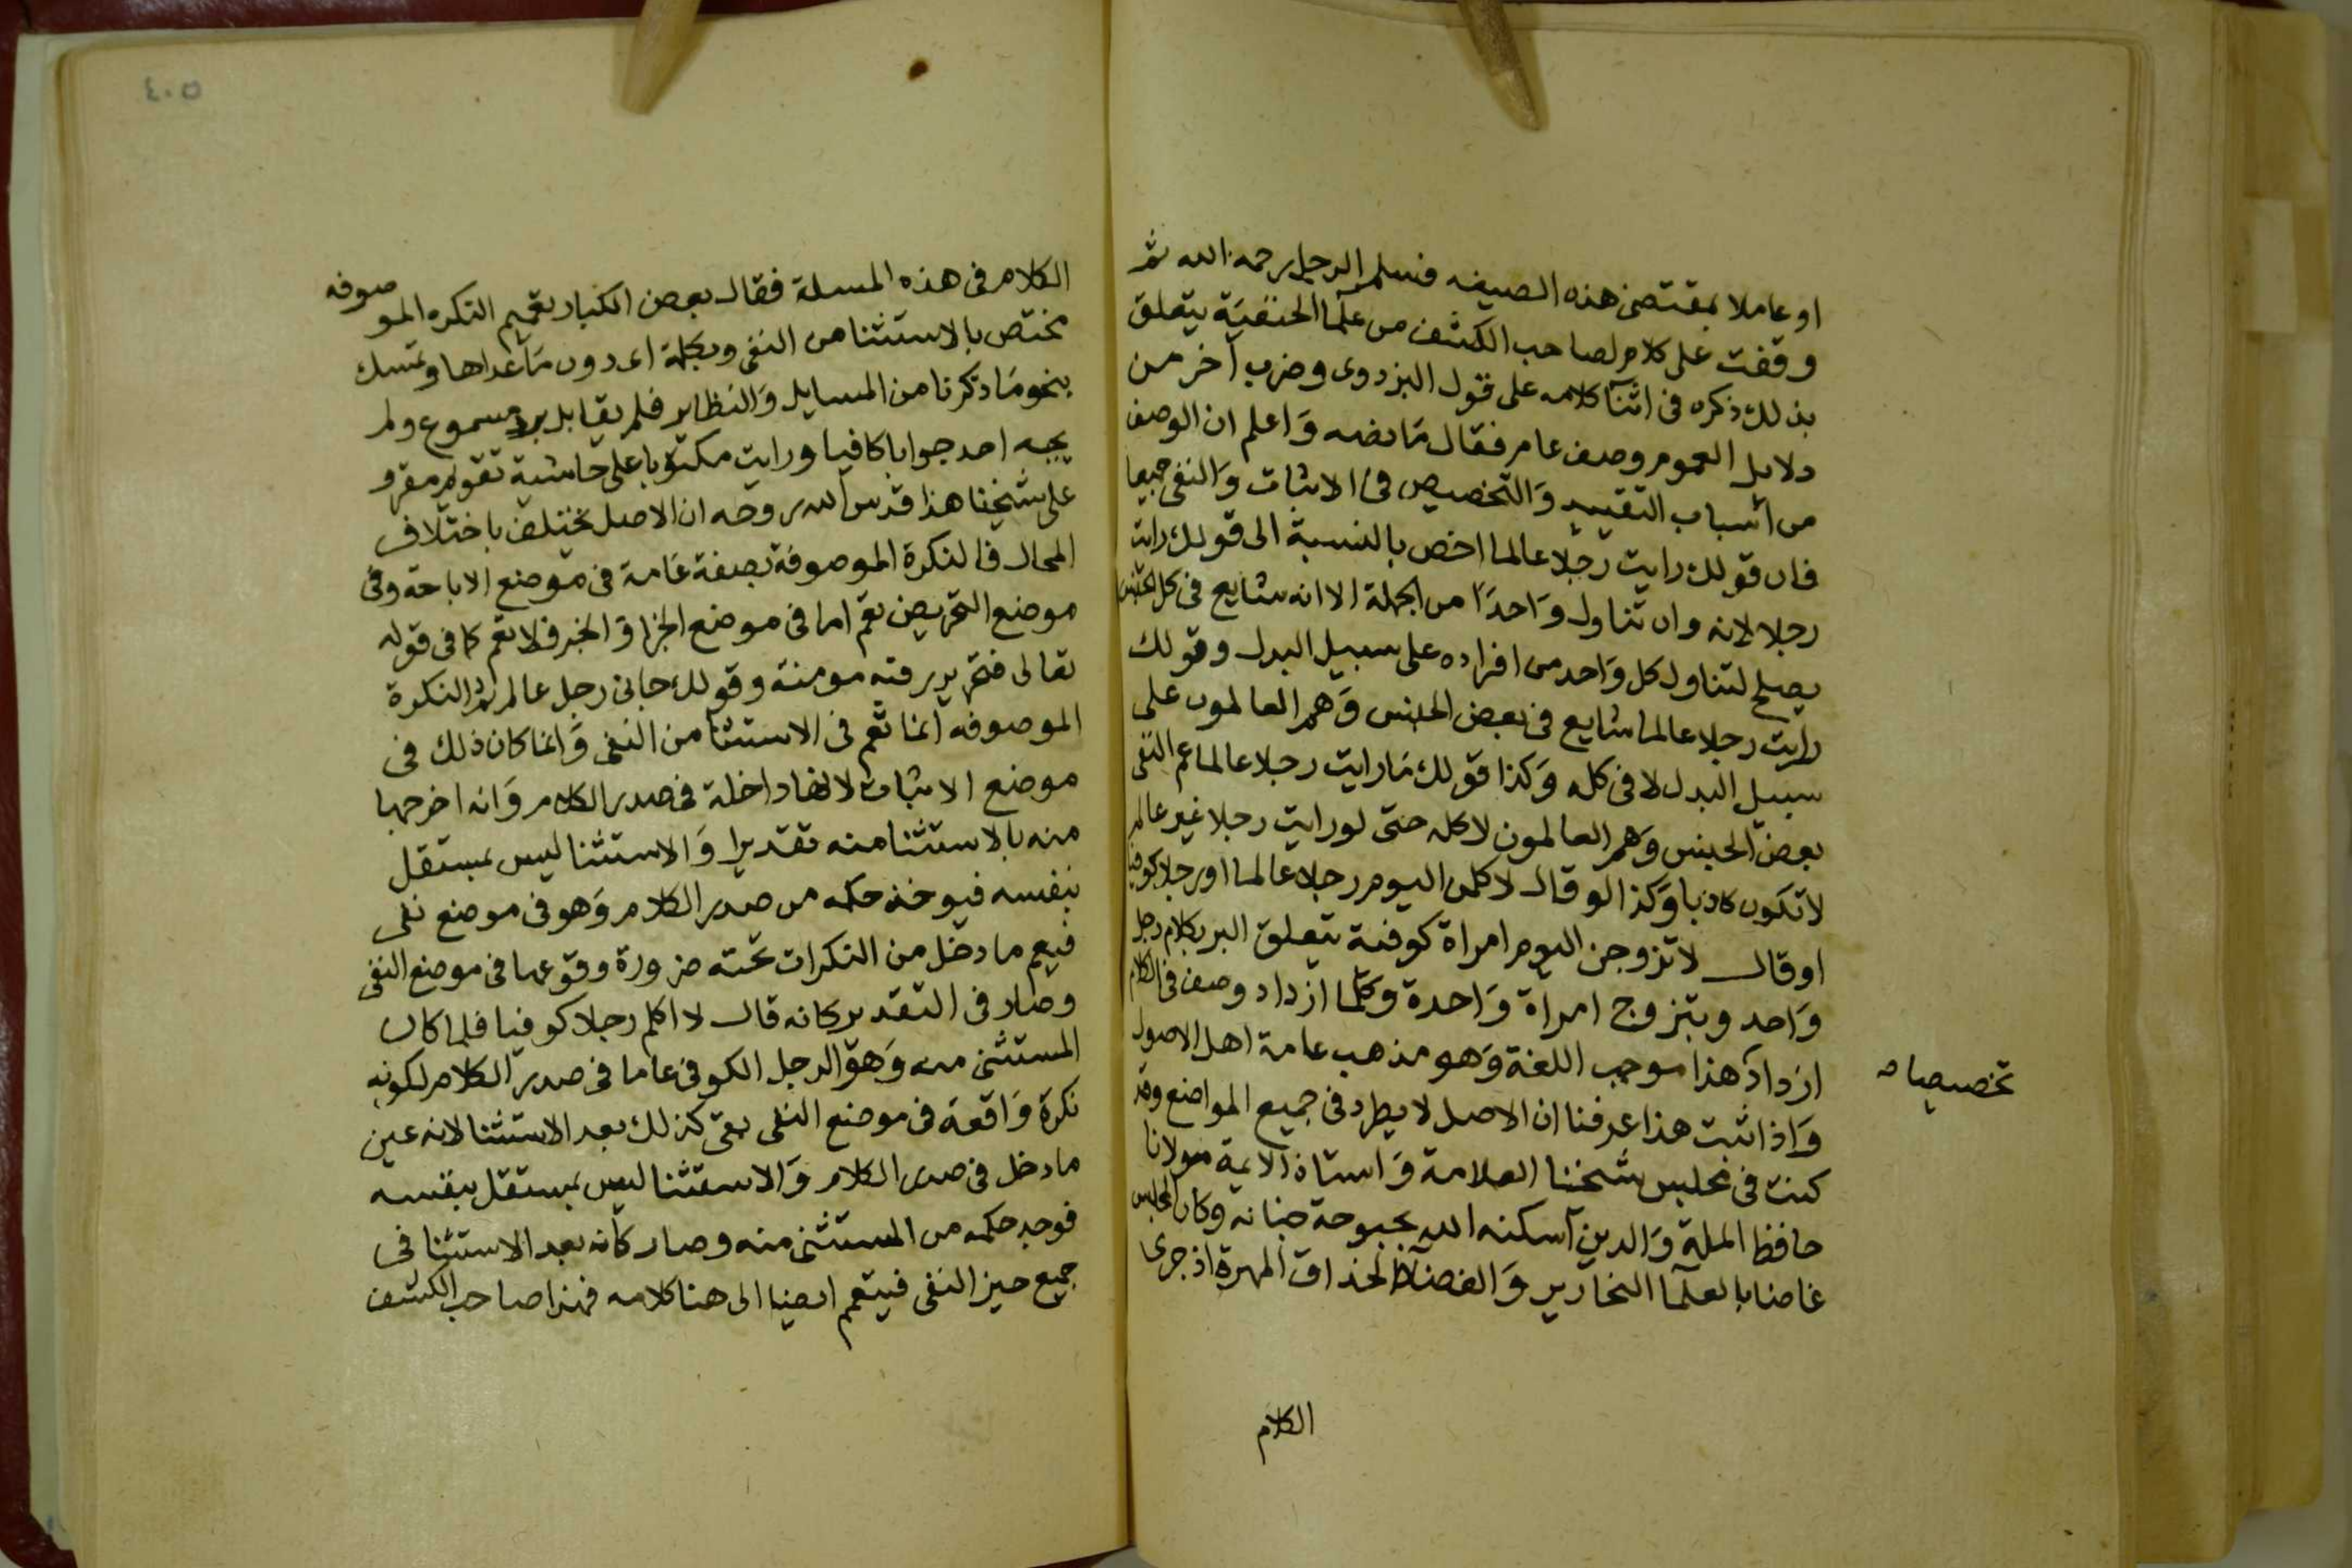 او عاملا بمقتضى هذه الصيغه فسلم الرجل رحمه الله ثم
وقفت على كلام لصاحب الكشف من علمآ الحنفية يتعلق
بذلك ذكره فى اثنآ كلامه على قول البزدوى وضرب آخر من
دلايل العموم وصف عام فقال مانصه واعلم ان الوصف
من اسباب التقييد والتخصيص فى الاثبات والنفى جميعا
فان قولك رايت رجلا عالما اخص بالنسبة الى قولك رايت
رجلا لانه وان تناول واحدًا من الجملة الا انه شايع فى كل الجنس
يصلح لتناول كل واحد من افراده على سبيل البدل وقولك
رايت رجلا عالما شايع فى بعض الجنس وهم العالمون على
سبيل البدل لا فى كله وكذا قولك مارايت رجلا عالما عم النفى
بعض الجنس وهم العالمون لا كله حتى لو رايت رجلا غير عالم
لاتكون كاذبا وكذا لو قال لاكلمن اليوم رجلا عالما او رجلا كوفيا
او قال لاتزوجن اليوم امراة كوفية يتعلق البر بكلام رجل
واحد وبتزوج امراة واحدة وكلما ازداد وصف فى الكلام
ازداد هذا موجب اللغة وهو مذهب عامة اهل الاصول
تخصيصا صح
واذا ثبت هذا عرفنا ان الاصل لا يطرد فى جميع المواضع وقد
كنت فى مجلس شيخنا العلامة واستاذ الايمة مولانا
حافظ الملة والدين اسكنه الله بحبوحة جنانه وكان المجلس
غاصا بالعلمآ النحارير والفضلآ الحذاق المهرة اذ جرى
الكلام
٤٠٥
الكلام فى هذه المسلة فقال بعض الكبار تعميم النكره الموصوفه
مختص بالاستثنا من النفى وبكلمة اى دون ماعداها وتمسك
بنحو ماذكرنا من المسايل والنظاير فلم يقابل برد مسموع ولم
يجبه احد جوابا كافيا ورايت مكتوبا على حاشية تقويم مقرو
على شيخنا هذا قدس الله روحه ان الاصل يختلف باختلاف
المحال فالنكرة الموصوفة بصفة عامة فى موضع الاباحة وفى
موضع التحريض تعم اما فى موضع الجزا والخبر فلا تعم كما فى قوله
تعالى فتحرير رقبه مومنة وقولك جانى رجل عالم ثم النكرة
الموصوفه انما تعم فى الاستثنا من النفى وانما كان ذلك فى
موضع الاثبات لانها داخلة فى صدر الكلام وانه اخرجها
منه بالاستثنا منه تقديرا والاستثنا ليس بمستقل
بنفسه فيوخذ حكمه من صدر الكلام وهو فى موضع نفى
فيعم مادخل من النكرات تحته ضرورة وقوعها فى موضع النفى
وصار فى التقدير كانه قال لا اكلم رجلا كوفيا فلما كان
المستثنى منه وهو الرجل الكوفى عاما فى صدر الكلام لكونه
نكرة واقعة فى موضع النفى بقى كذلك بعد الاستثنا لانه عين
مادخل فى صدر الكلام والاستثنا ليس بمستقل بنفسه
فوجد حكمه من المستثنى منه وصار كانه بعد الاستثنا فى
جميع حيز النفى فيتعمم ايضا الى هنا كلامه فهذا صاحب الكشف